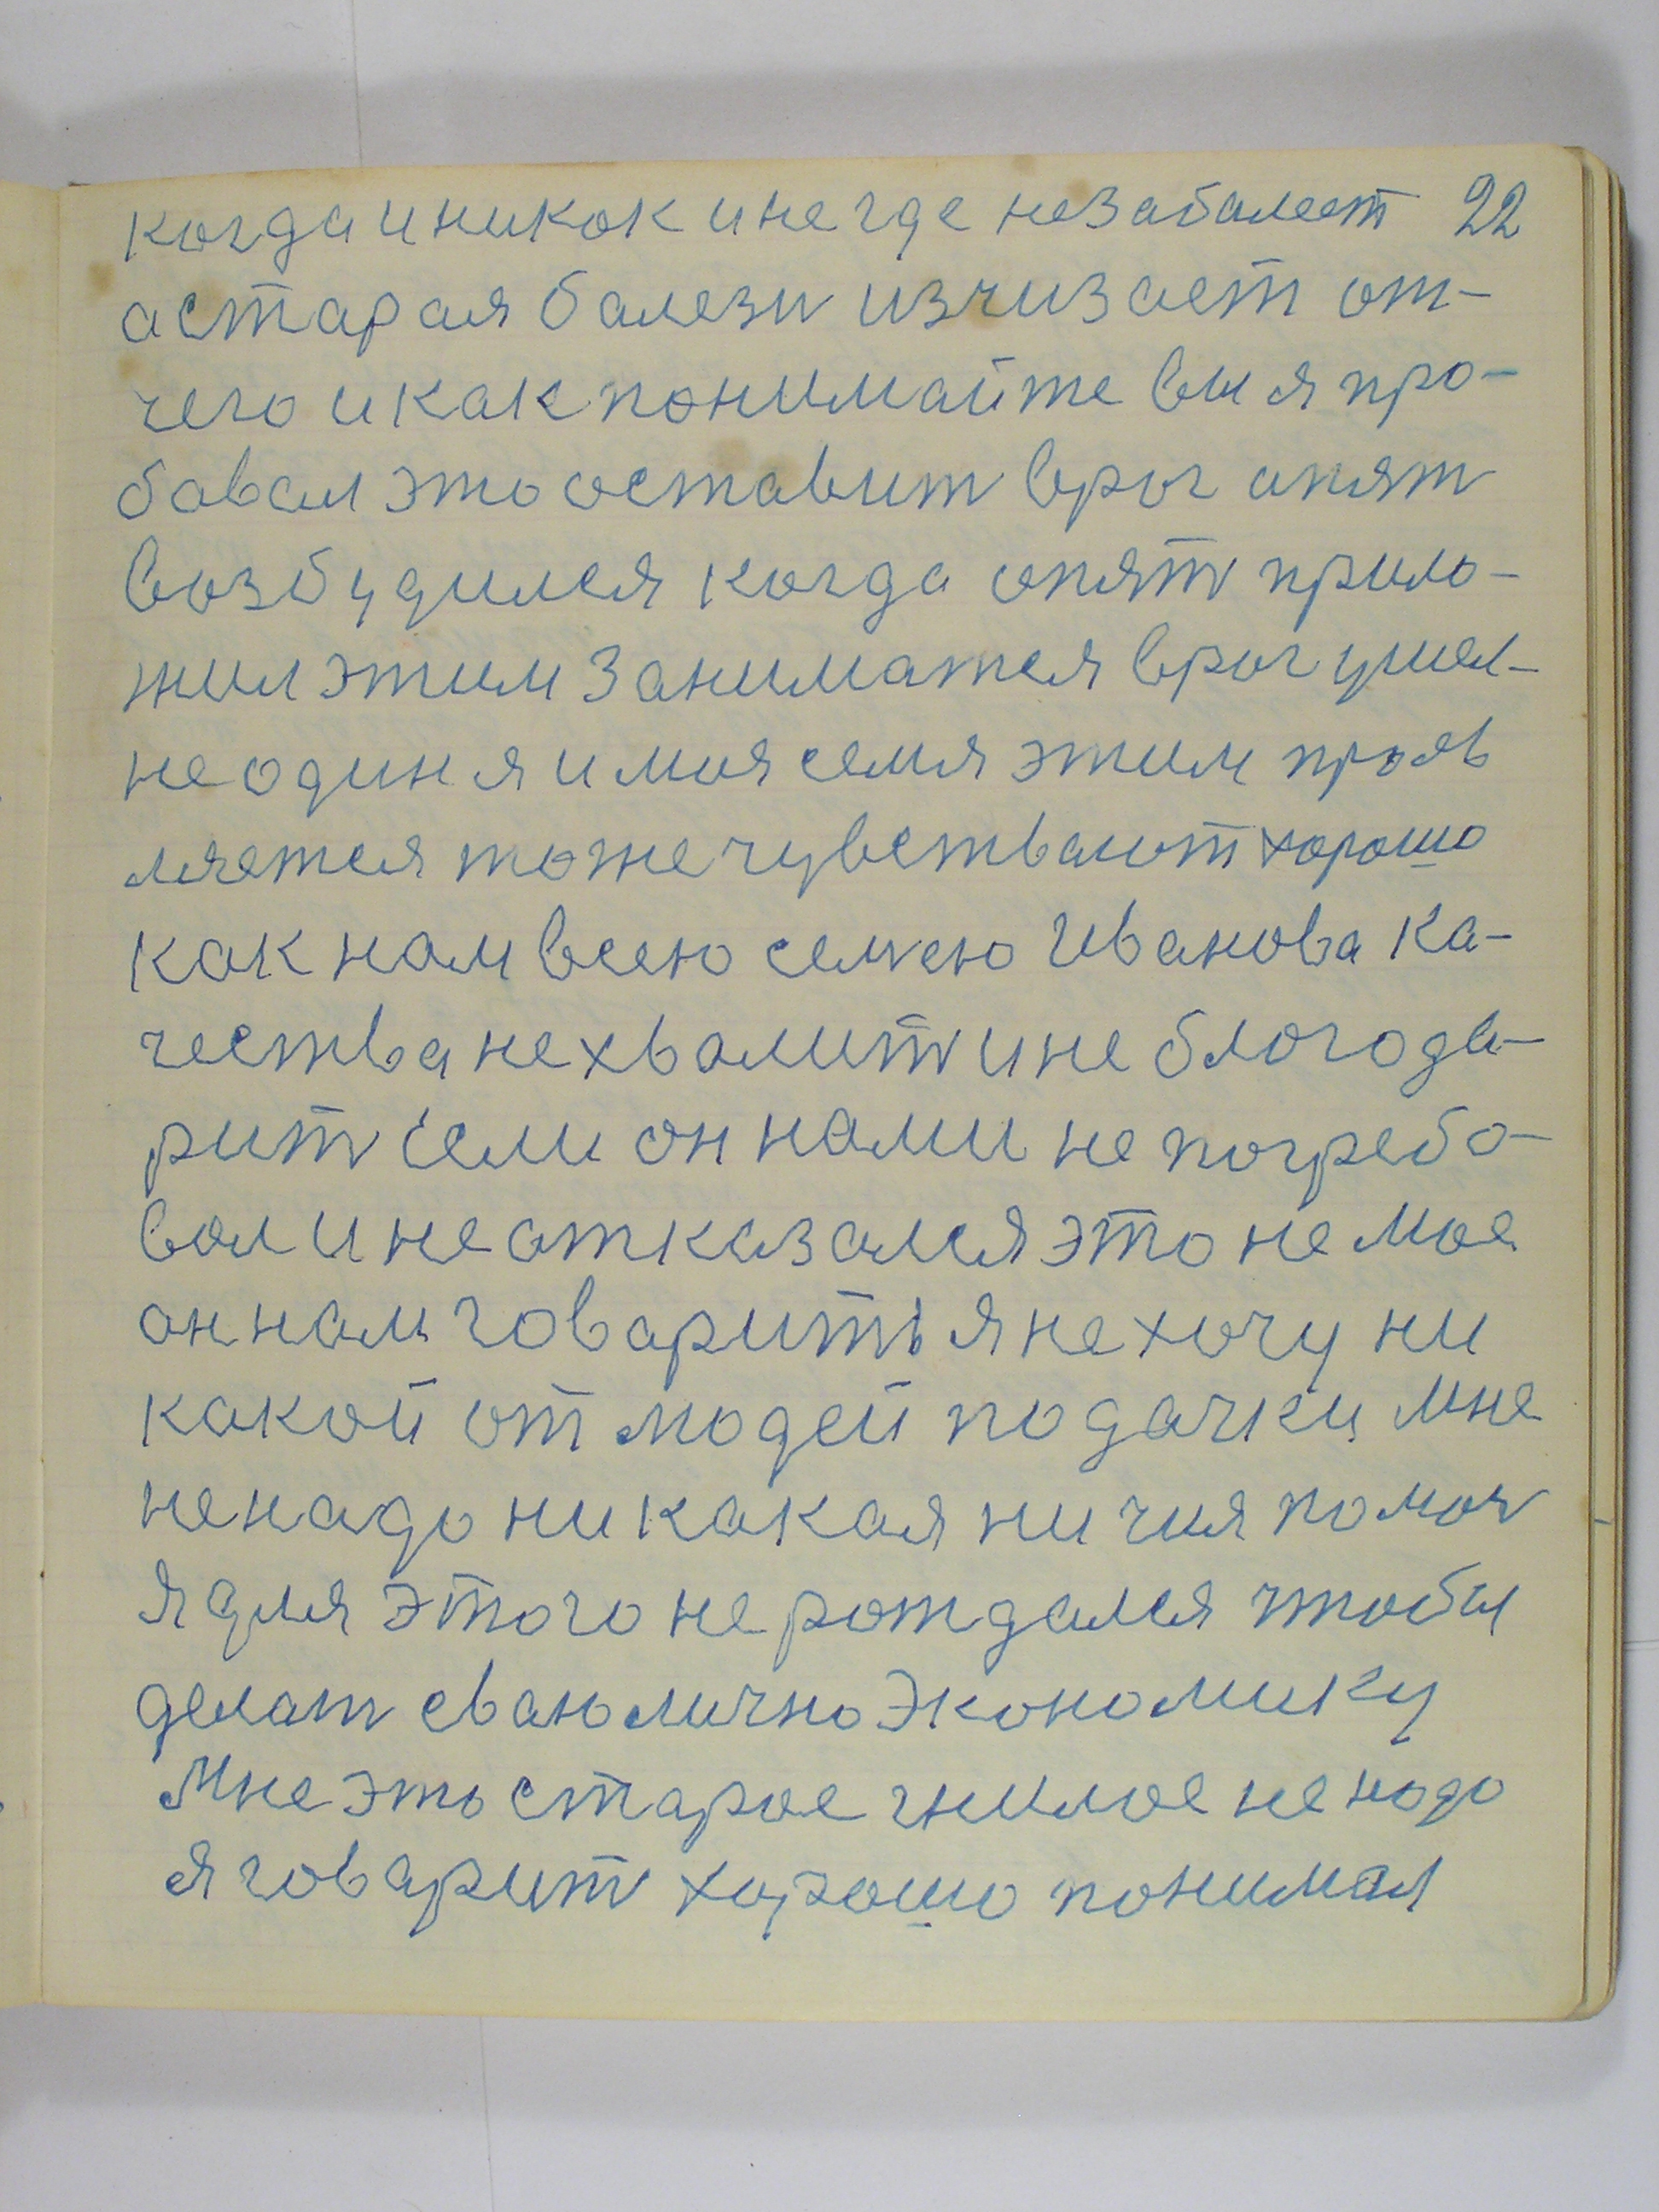 когда и никак и не где незабалеет 22
а старая балезн изчизает от-
чего и как понимайте вы я про-
бавал это оставит враг апят
возбудился когда опятъ прило-
жил этим заниматся враг ушел-
не один я и моя семя этим прояв
ляется тоже чувствают хорошо
как нам всею семъею Иванова ка-
чества не хвалитъ и не благода-
рит если он нами не погреба-
вал и не отказался это не мое
он нам говарить я не хочу ни
какой от людей подачки мне
ненадо ни какая ни чия помоч
Я для этого не рождался чтобы
делат сваю лично Экономику
Мне это старое гнилое не надо
я говарит хорошо понимал